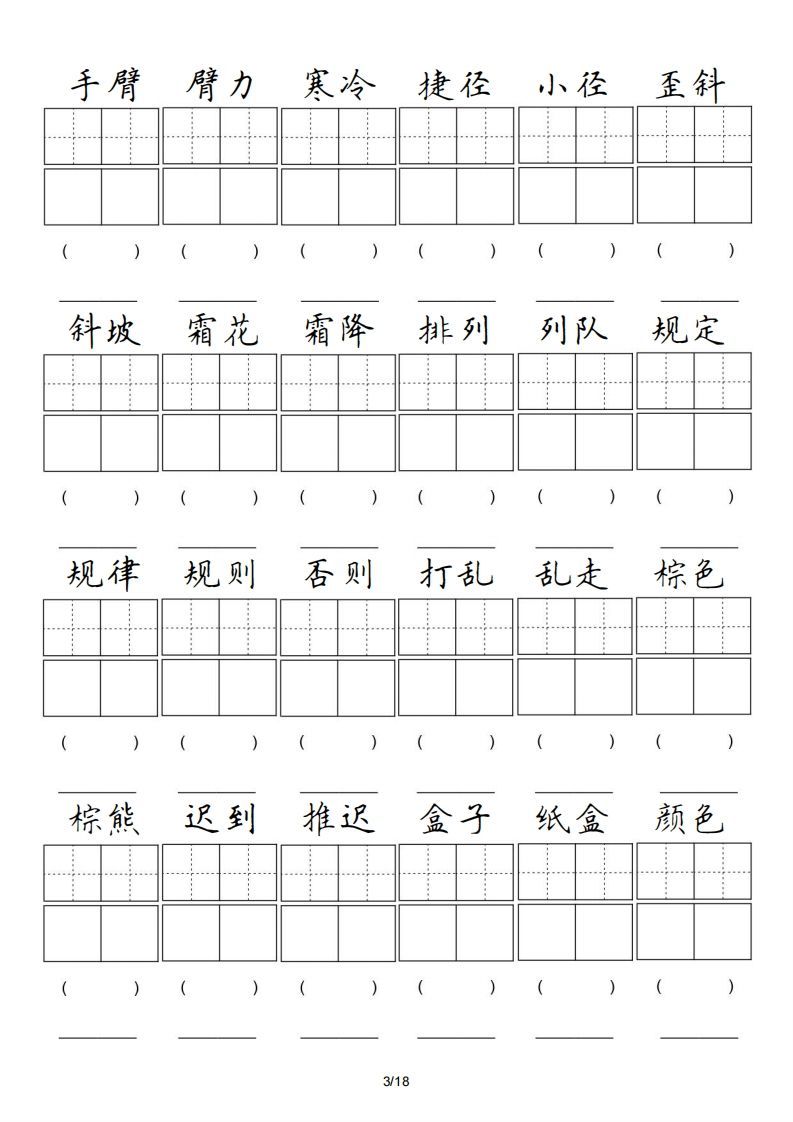 手臂 臂力 寒冷 捷径 小径 歪斜
( ) ( ) ( ) ( ) ( ) ( )
斜坡 霜花 霜降 排列 列队 规定
( ) ( ) ( ) ( ) ( ) ( )
规律 规则 否则 打乱 乱走 棕色
( ) ( ) ( ) ( ) ( ) ( )
棕熊 迟到 推迟 盒子 纸盒 颜色
( ) ( ) ( ) ( ) ( ) ( )
3/18